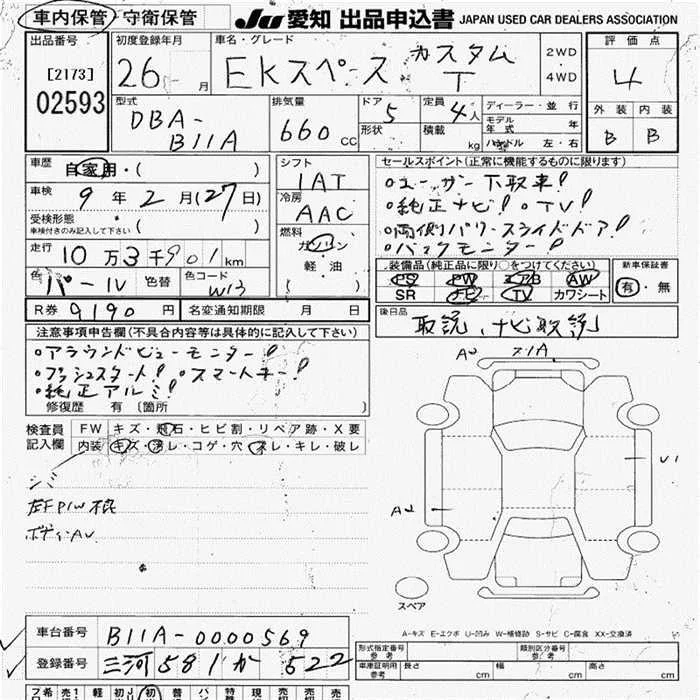 車内保管・守衛保管 JU 愛知 出品申込書 JAPAN USED CAR DEALERS ASSOCIATION
出品番号
[2173]
02593
初度登録年月
26 月
車名・グレード
EKスペース カスタム T
2WD
4WD
評価点
4
外装 内装
B B
型式
DBA-
B11A
排気量
660 cc
ドア 5
形状
定員 4人
積載 kg
ディーラー・並行
モデル年式 年
ハンドル 左・右
車歴
自家用・( )
車検
9年 2月(27日)
受検形態
車検付きのみ記入して下さい ( )
走行
10万3千901km
色 パール 色替
色コード W13
シフト
IAT
冷房
AAC
燃料
ガソリン
軽・油
( )
セールスポイント(正常に機能するものに限ります)
○ユーザー下取車!
○純正ナビ! ○TV!
○両側パワースライドドア!
○バックモニター!
装備品(純正品に限り○をつけてください)
PS PW エアB AW
SR ナビ TV カワシート
新車保証書
有・無
R券 9190円 名変通知期限 月 日
後日品
取説、ナビ取説
注意事項申告欄(不具合内容等は具体的に記入して下さい)
○アラウンドビューモニター!
○プッシュスタート! ○スマートキー!
○純正アルミ!
修復歴 有 〔箇所 〕
検査員記入欄
FW キズ・飛石・ヒビ割・リペア跡・X要
内装 キズ・汚レ・コゲ・穴・スレ・キレ・破レ
シミ
左FP/W
ボディAU
A2
U1
A2
スペア
A-キズ E-エクボ U-凹み W-補修跡 S-サビ C-腐食 XX-交換済
車台番号 B11A-0000569
登録番号 三河 581 か 522
形式指定番号 参考
類別区分番号 参考
車庫証明用 参考 長さ cm 幅 cm 高さ cm